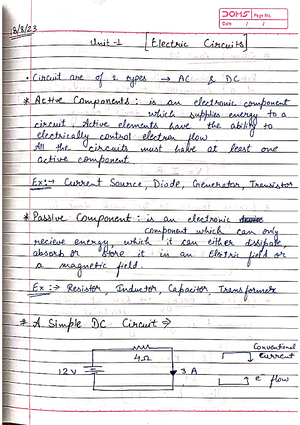 18/8/23
DOMS Page No.
Date / /
Unit-1 [Electric Circuits]
• Circuit are of 2 types → AC & DC
* Active Components: is an electronic component
which supplies energy to a
circuit. Active elements have the ability to
electrically control electron flow
All the circuits must have at least one
active component
Ex:→ Current Source, Diode, Generator, Transistor
* Passive Component: is an electronic
component which can only
recieve energy, which it can either dissipate,
absorb or store it in an Elctric field or
a magnetic field.
Ex:→ Resistor, Inductor, Capacitor Transformer
* A Simple DC Circuit ⇒
4Ω
12V
3 A
Conventional
current
e⁻ flow